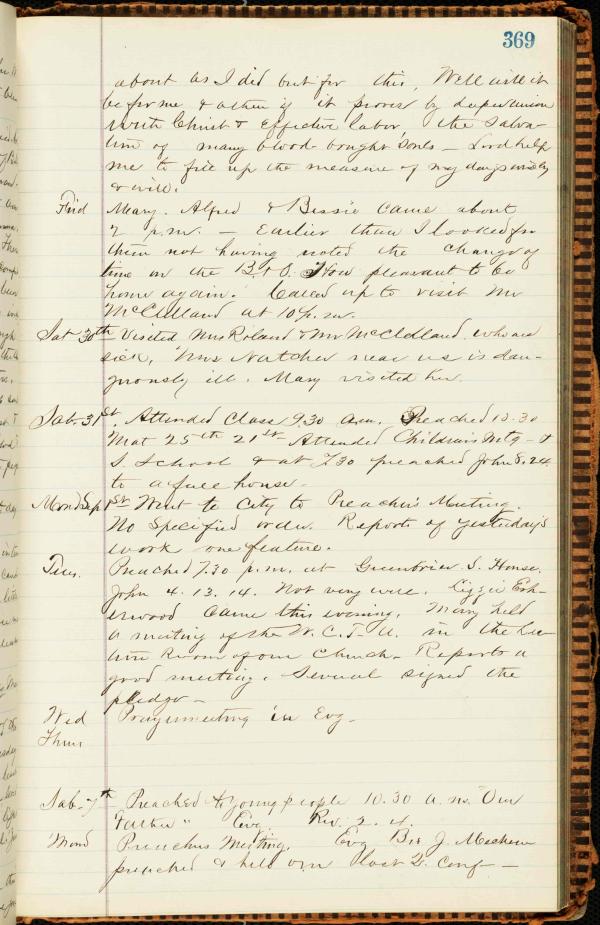 369
about as I did but for this. Well will it
be for me & others if it proves by deeper union
with Christ & Effective labor, the Salva-
tion of many blood-bought Souls – Lord help
me to fill up the measure of my days wisely
& well.
Frid Mary. Alfred & Bessie came about
2 p.m. – Earlier than I looked for
them not having noted the change of
time on the B. & O. How pleasant to be
home again. Called up to visit Mr
McClelland at 10 p.m.
Sat 30th Visited Mrs Roland & Mr McClelland who are
sick, Mrs Natcher near us is dan-
grously ill. Mary visited her.
Sab. 31st. Attended Class 9.30 a.m. Preached 10.30
Mat 25th 21st Attended Children's Mtg – &
S. School & at 7.30 preached John 8.24
to a full house.
Mond Sep 1st Went to City to Preacher's Meeting.
No Specified order. Reports of yesterday's
work one feature.
Tues. Preached 7.30 p.m. at Greenbrier S. House.
John 4. 13. 14. Not very well. Lizzie
came this evening. Mary held
a meeting of the W. C. T. U. in the Lec-
ture Room of our Church – Reports a
good meeting. Several signed the
pledge –
Wed Prayermeeting in Evg –
Thurs
Sab. 7th – Preached to young people 10.30 a.m. "Our
Father" Evg Rev. 2. 4.
Mond Preachers Meeting. Evg Bro J.
preached & held our last Q. Conf –